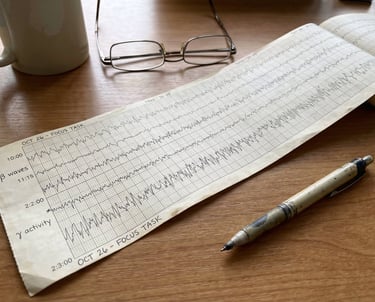 OCT 26 - FOCUS TASK
10:00
β waves
11:15
2:2:00
γ activity
2:3:00
OCT 26 - FOCUS TASK